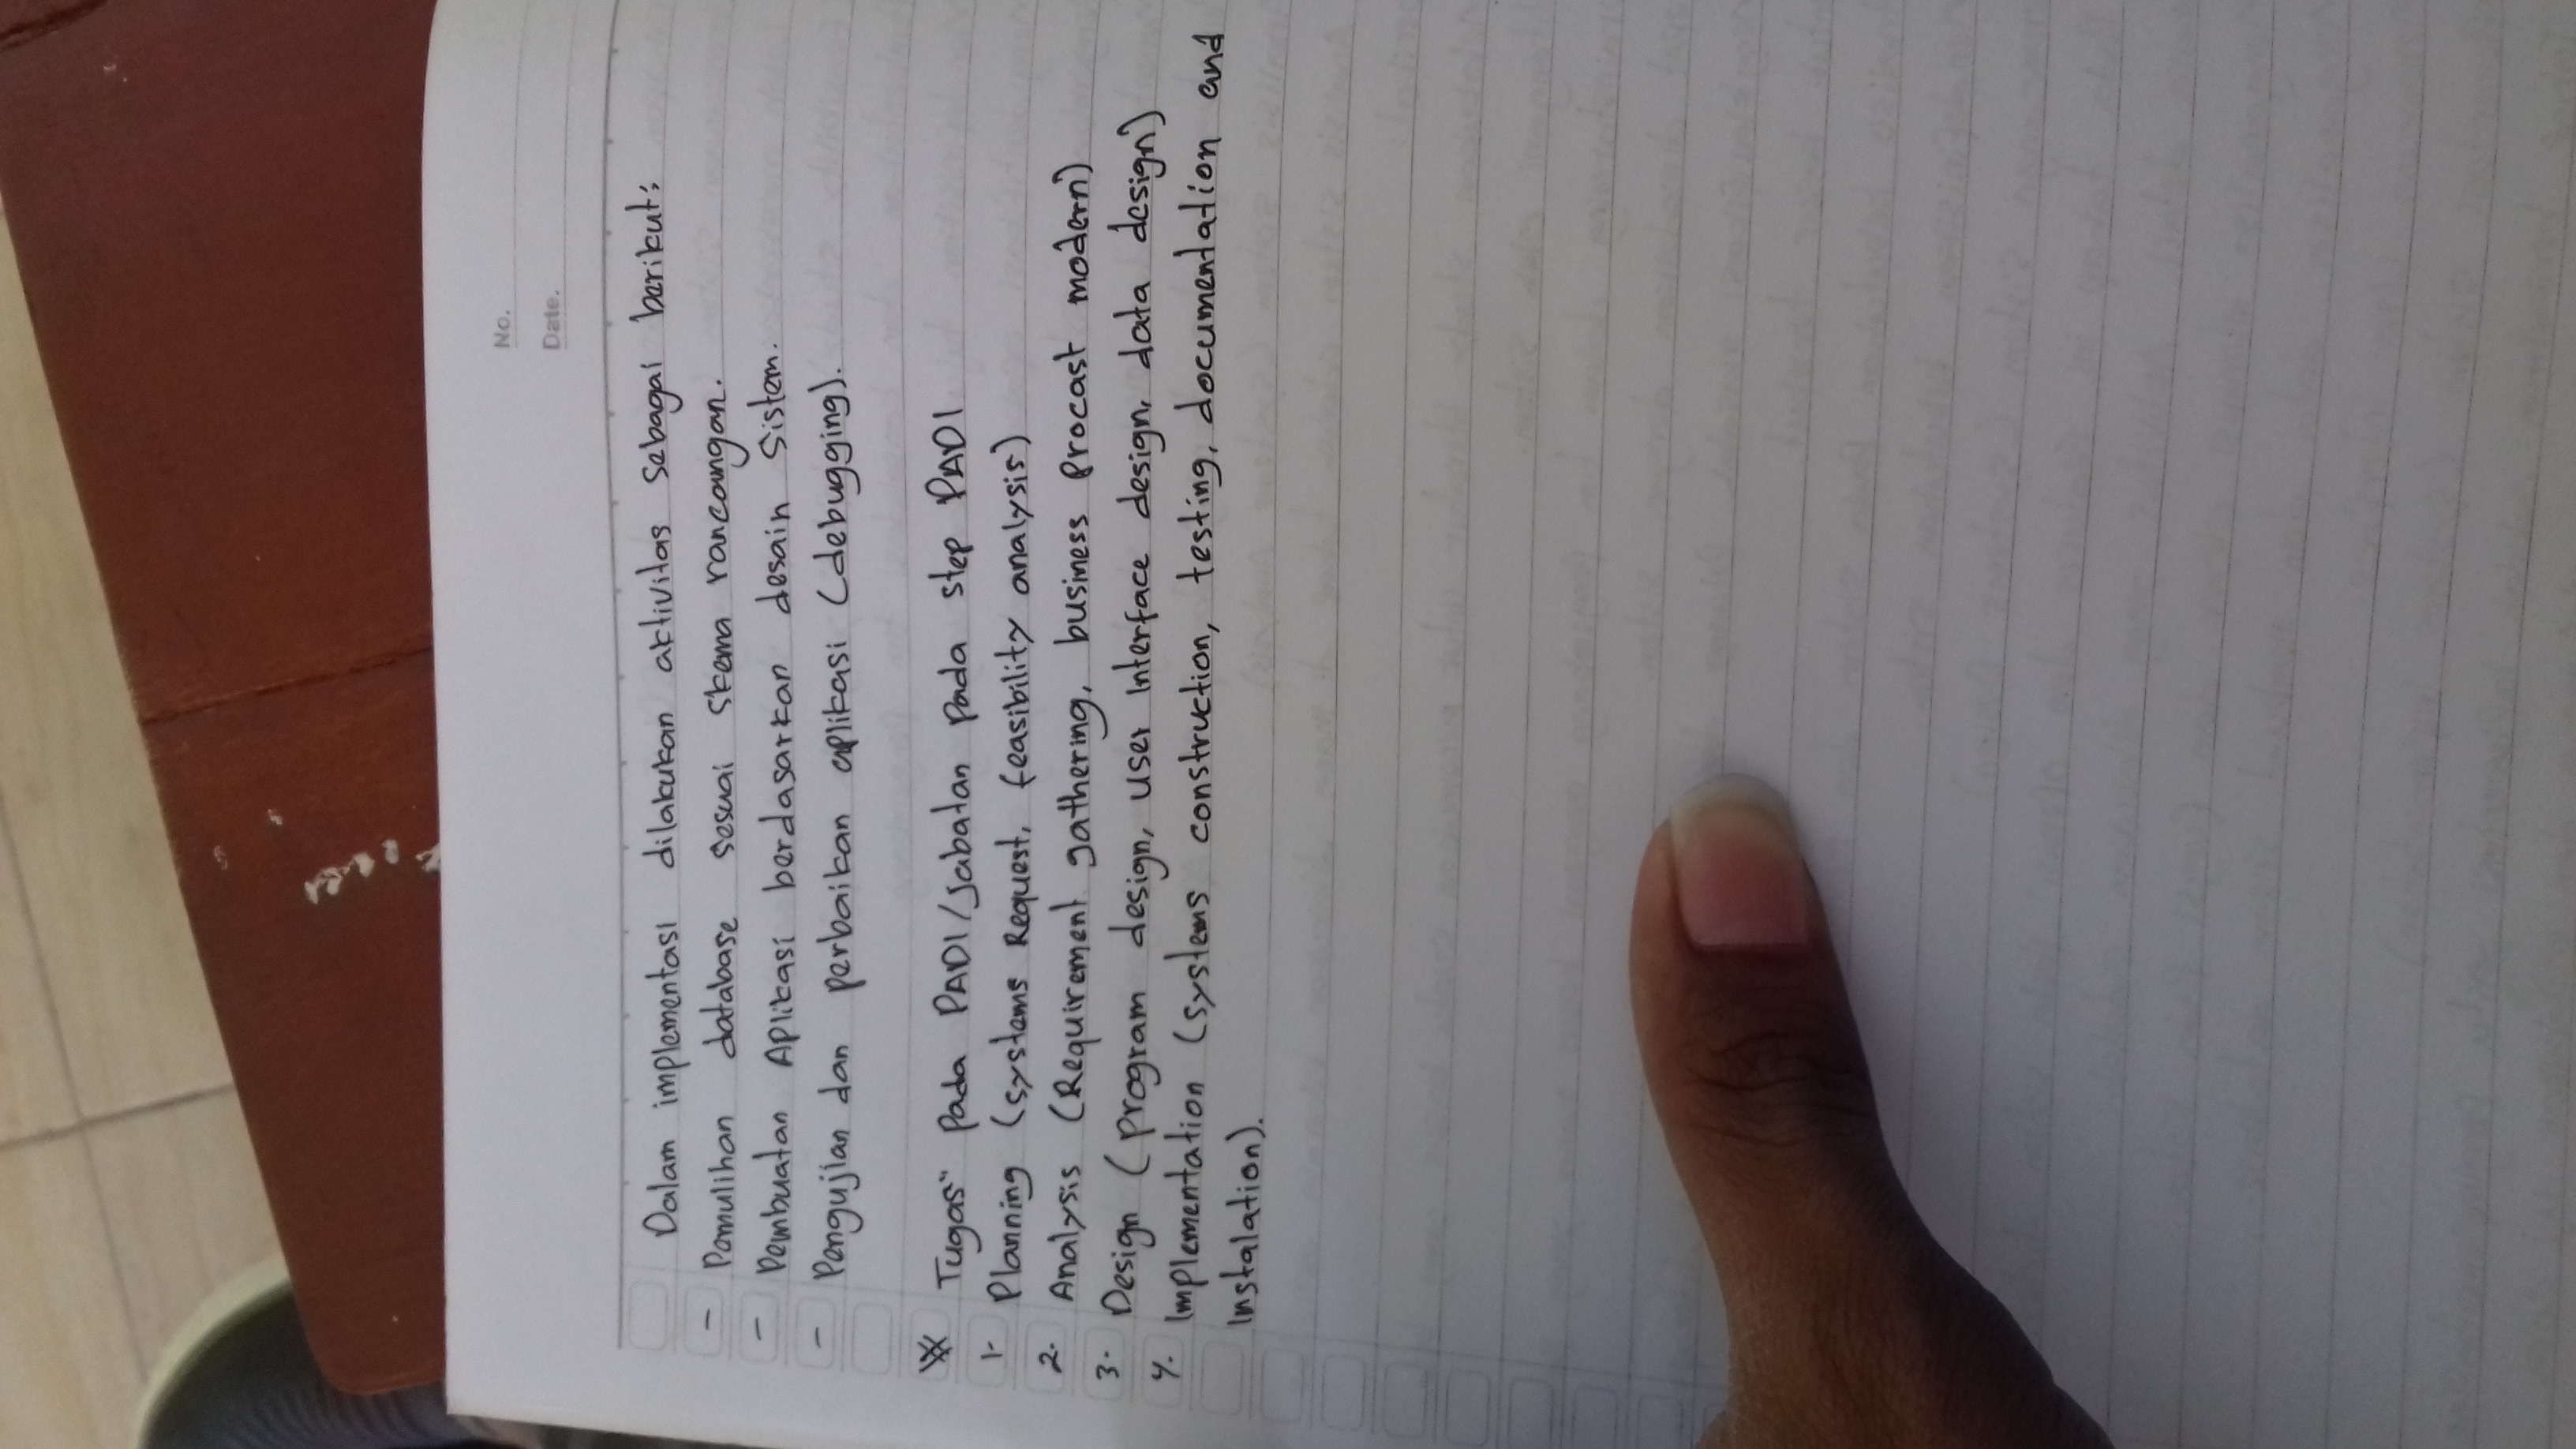 No.
Date.
Dalam implementasi dilakukan aktivitas sebagai berikut:
- Pemulihan database sesuai skema rancangan.
- Pembuatan Aplikasi berdasarkan desain sistem.
- Pengujian dan perbaikan aplikasi (debugging).
Tugas" pada PADI/jabatan pada step PADI
1. Planning (systems Request, feasibility analysis)
2. Analysis (Requirement gathering, business procast modern)
3. Design (program design, user Interface design, data design)
4. Implementation (systems construction, testing, documentation and
Instalation).